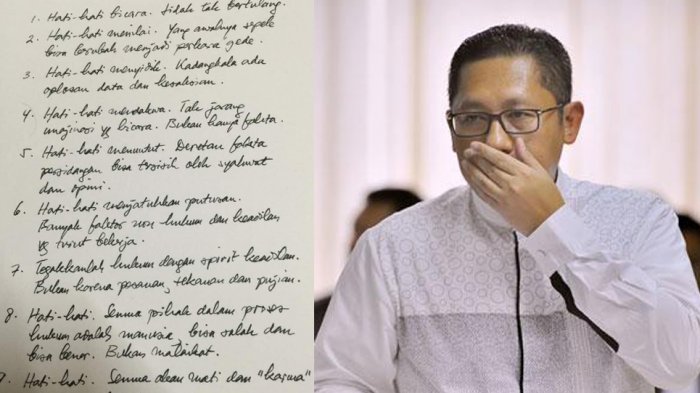 1. Hati-hati bicara. Lidah tak bertulang.
2. Hati-hati menilai. Yang awalnya sepele
bisa berubah menjadi perkara gede.
3. Hati-hati menyidik. Kadangkala ada
oplosan data dan kesaksian.
4. Hati-hati mendakwa. Tak jarang
imajinasi yg bicara. Bukan hanya fakta.
5. Hati-hati menuntut. Deretan fakta
persidangan bisa tersisih oleh syahwat
dan opini.
6. Hati-hati menjatuhkan putusan.
Banyak faktor non hukum dan keadilan
yg turut bekerja.
7. Tegakkanlah hukum dengan spirit keadilan.
Bukan karena pesanan, tekanan dan pujian.
8. Hati-hati. Semua pihak dalam proses
hukum adalah manusia, bisa salah dan
bisa benar. Bukan malaikat.
9. Hati-hati. Semua akan mati dan "karma"